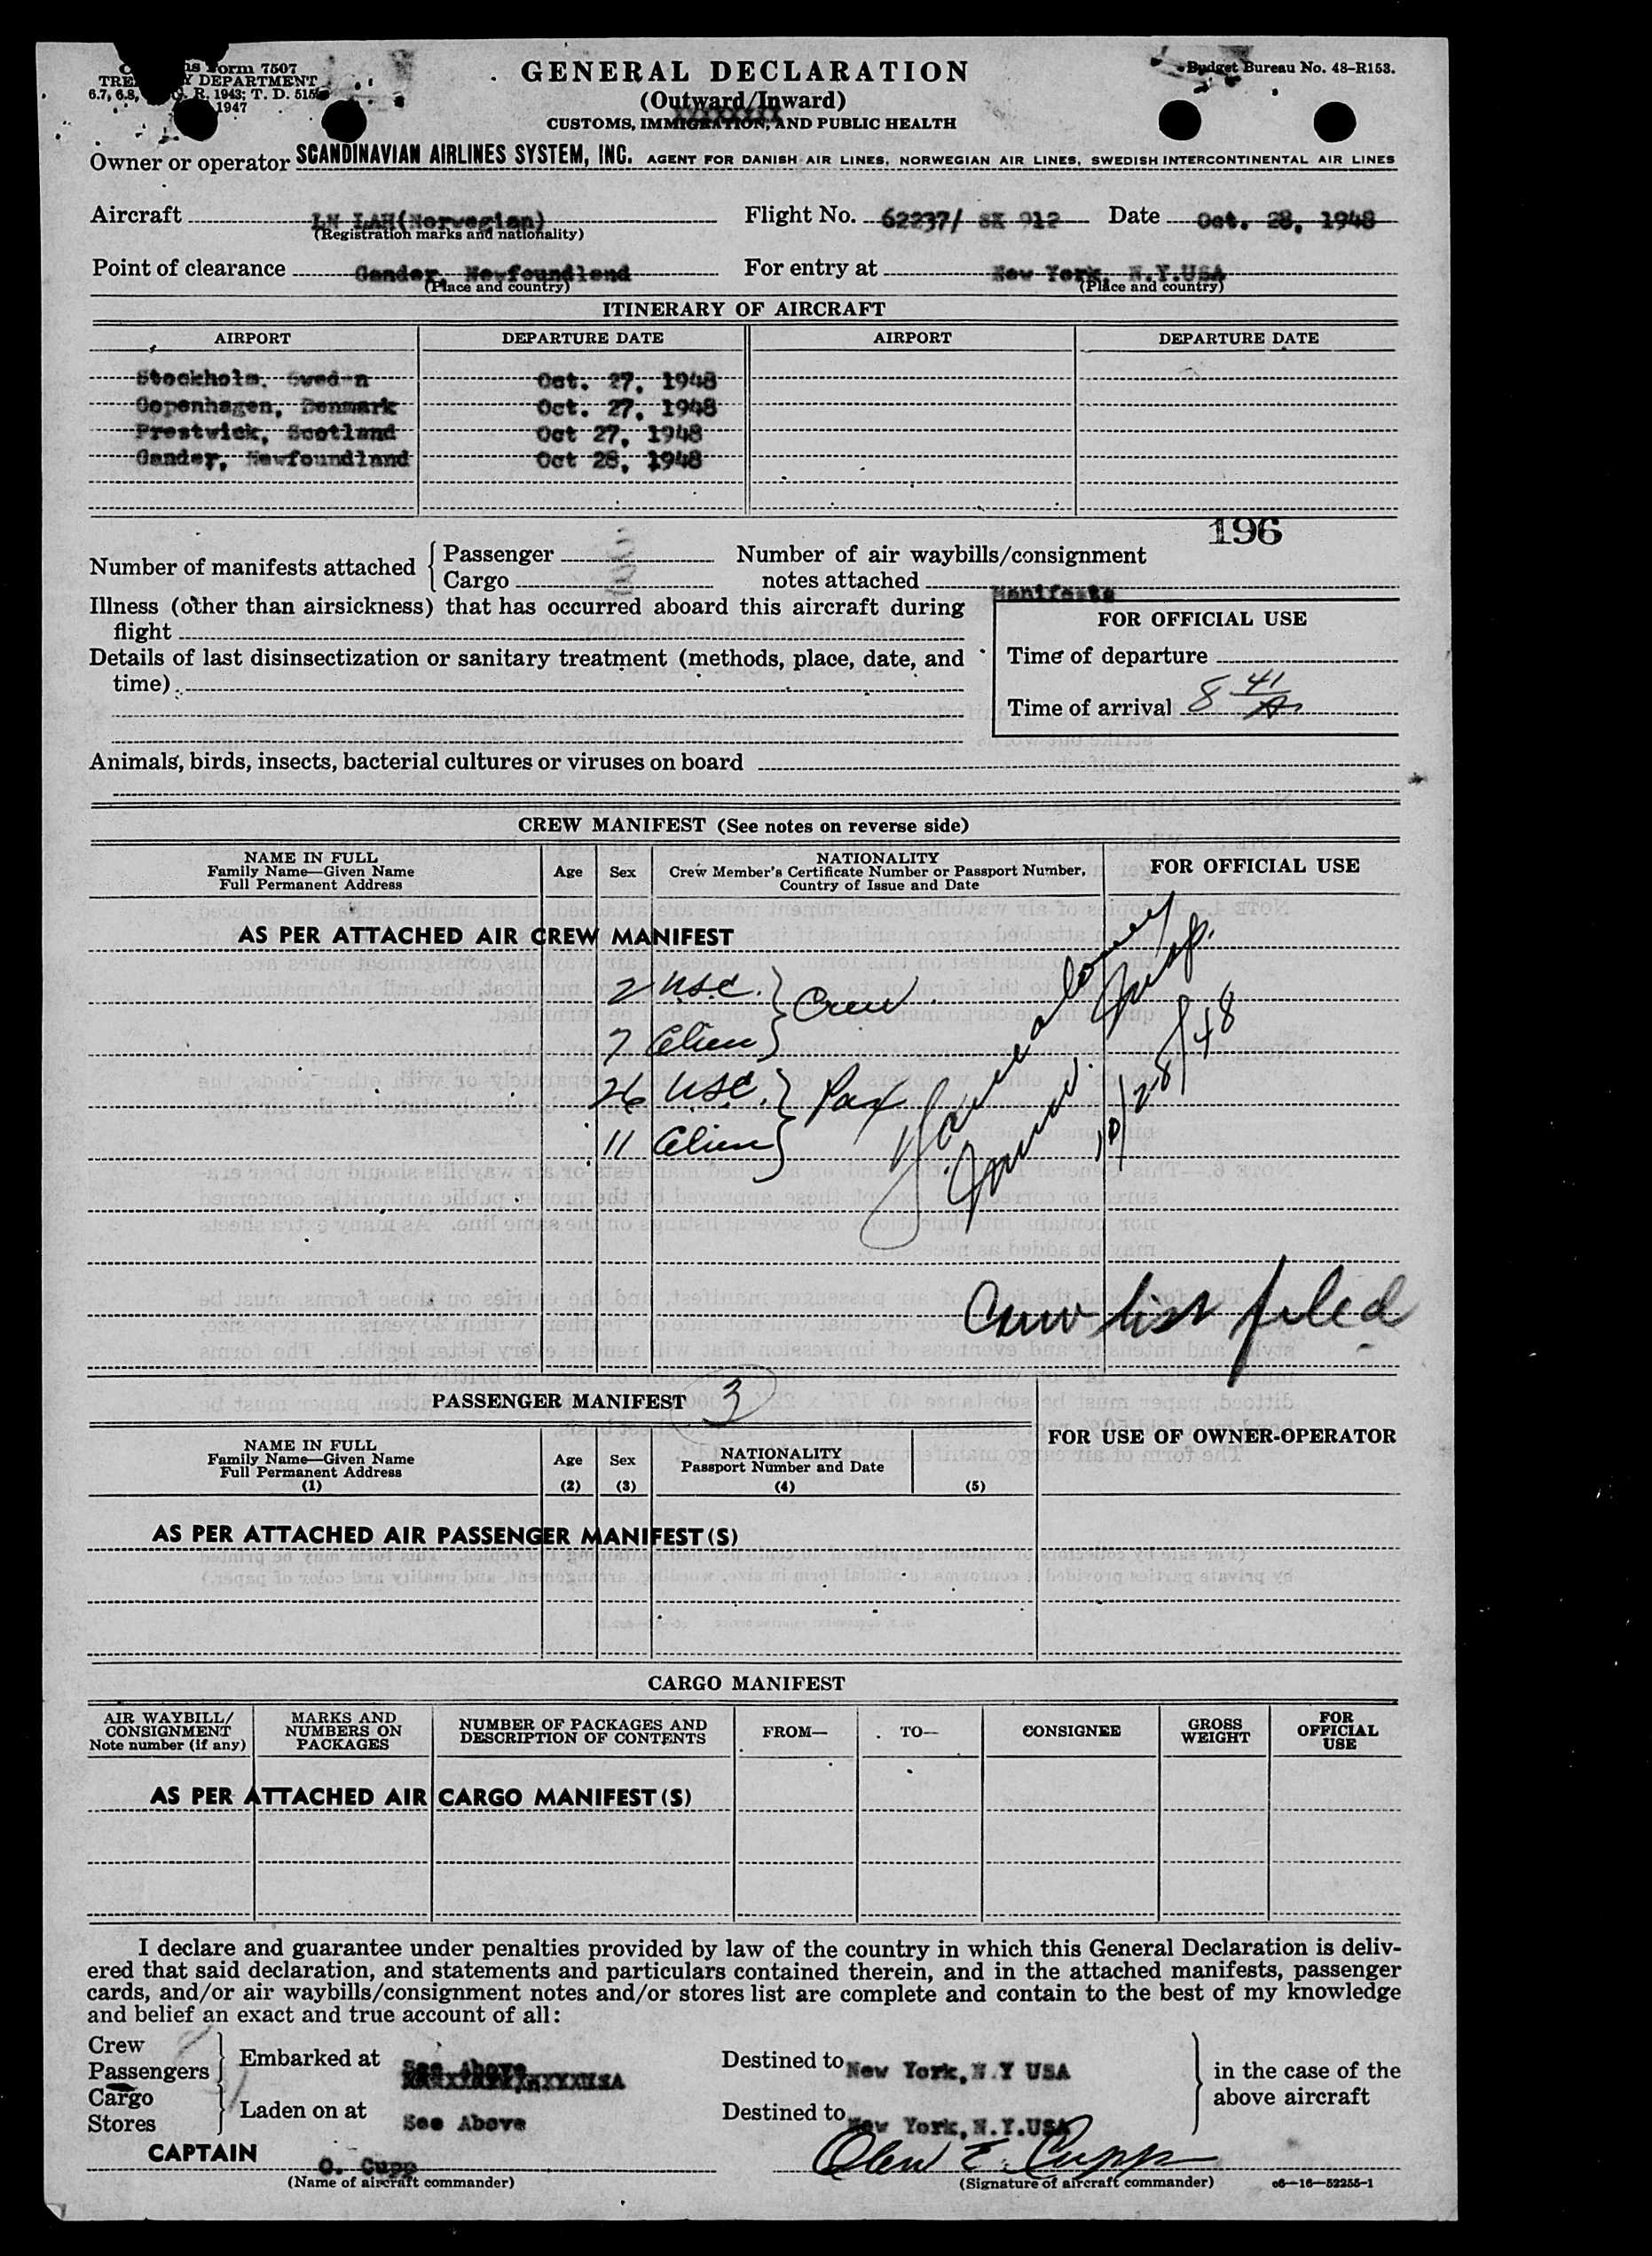 Form 7507
TREASURY DEPARTMENT
6.7, 6.8, C. R. 1943; T. D. 515
1947
GENERAL DECLARATION
(Outward/Inward)
CUSTOMS, IMMIGRATION, AND PUBLIC HEALTH
Budget Bureau No. 48-R153.
Owner or operator SCANDINAVIAN AIRLINES SYSTEM, INC. AGENT FOR DANISH AIR LINES, NORWEGIAN AIR LINES, SWEDISH INTERCONTINENTAL AIR LINES
Aircraft LN LAH(Norwegian) Flight No. 62237/ SK 912 Date Oct. 28, 1948
(Registration marks and nationality)
Point of clearance Gander, Newfoundland For entry at New York, N.Y.USA
(Place and country) (Place and country)
ITINERARY OF AIRCRAFT
AIRPORT DEPARTURE DATE AIRPORT DEPARTURE DATE
Stockholm. Sweden Oct. 27, 1948
Copenhagen, Denmark Oct. 27, 1948
Prestwick, Scotland Oct 27, 1948
Gander, Newfoundland Oct 28, 1948
196
Number of manifests attached { Passenger 3 Number of air waybills/consignment
Cargo notes attached
Manifests
Illness (other than airsickness) that has occurred aboard this aircraft during
flight
Details of last disinsectization or sanitary treatment (methods, place, date, and
time)
FOR OFFICIAL USE
Time of departure
Time of arrival 8 41 A
Animals, birds, insects, bacterial cultures or viruses on board
CREW MANIFEST (See notes on reverse side)
NAME IN FULL
Family Name—Given Name
Full Permanent Address
Age Sex
NATIONALITY
Crew Member's Certificate Number or Passport Number,
Country of Issue and Date
FOR OFFICIAL USE
AS PER ATTACHED AIR CREW MANIFEST
2 USC. } Crew
7 Alien
26 USC. } Pax
11 Alien
Immig. Insp.
10/28/48
Crew list filed
PASSENGER MANIFEST 3
NAME IN FULL
Family Name—Given Name
Full Permanent Address
(1)
Age
(2)
Sex
(3)
NATIONALITY
Passport Number and Date
(4)
(5)
FOR USE OF OWNER-OPERATOR
AS PER ATTACHED AIR PASSENGER MANIFEST(S)
CARGO MANIFEST
AIR WAYBILL/
CONSIGNMENT
Note number (if any)
MARKS AND
NUMBERS ON
PACKAGES
NUMBER OF PACKAGES AND
DESCRIPTION OF CONTENTS
FROM—
TO—
CONSIGNEE
GROSS
WEIGHT
FOR
OFFICIAL
USE
AS PER ATTACHED AIR CARGO MANIFEST(S)
I declare and guarantee under penalties provided by law of the country in which this General Declaration is deliv-
ered that said declaration, and statements and particulars contained therein, and in the attached manifests, passenger
cards, and/or air waybills/consignment notes and/or stores list are complete and contain to the best of my knowledge
and belief an exact and true account of all:
Crew
Passengers } Embarked at See Above Destined to New York,N.Y USA
Cargo
Stores } Laden on at See Above Destined to New York,N.Y.USA
in the case of the
above aircraft
CAPTAIN O. Cupp Olen E. Cupp
(Name of aircraft commander) (Signature of aircraft commander) c6—16—52255-1